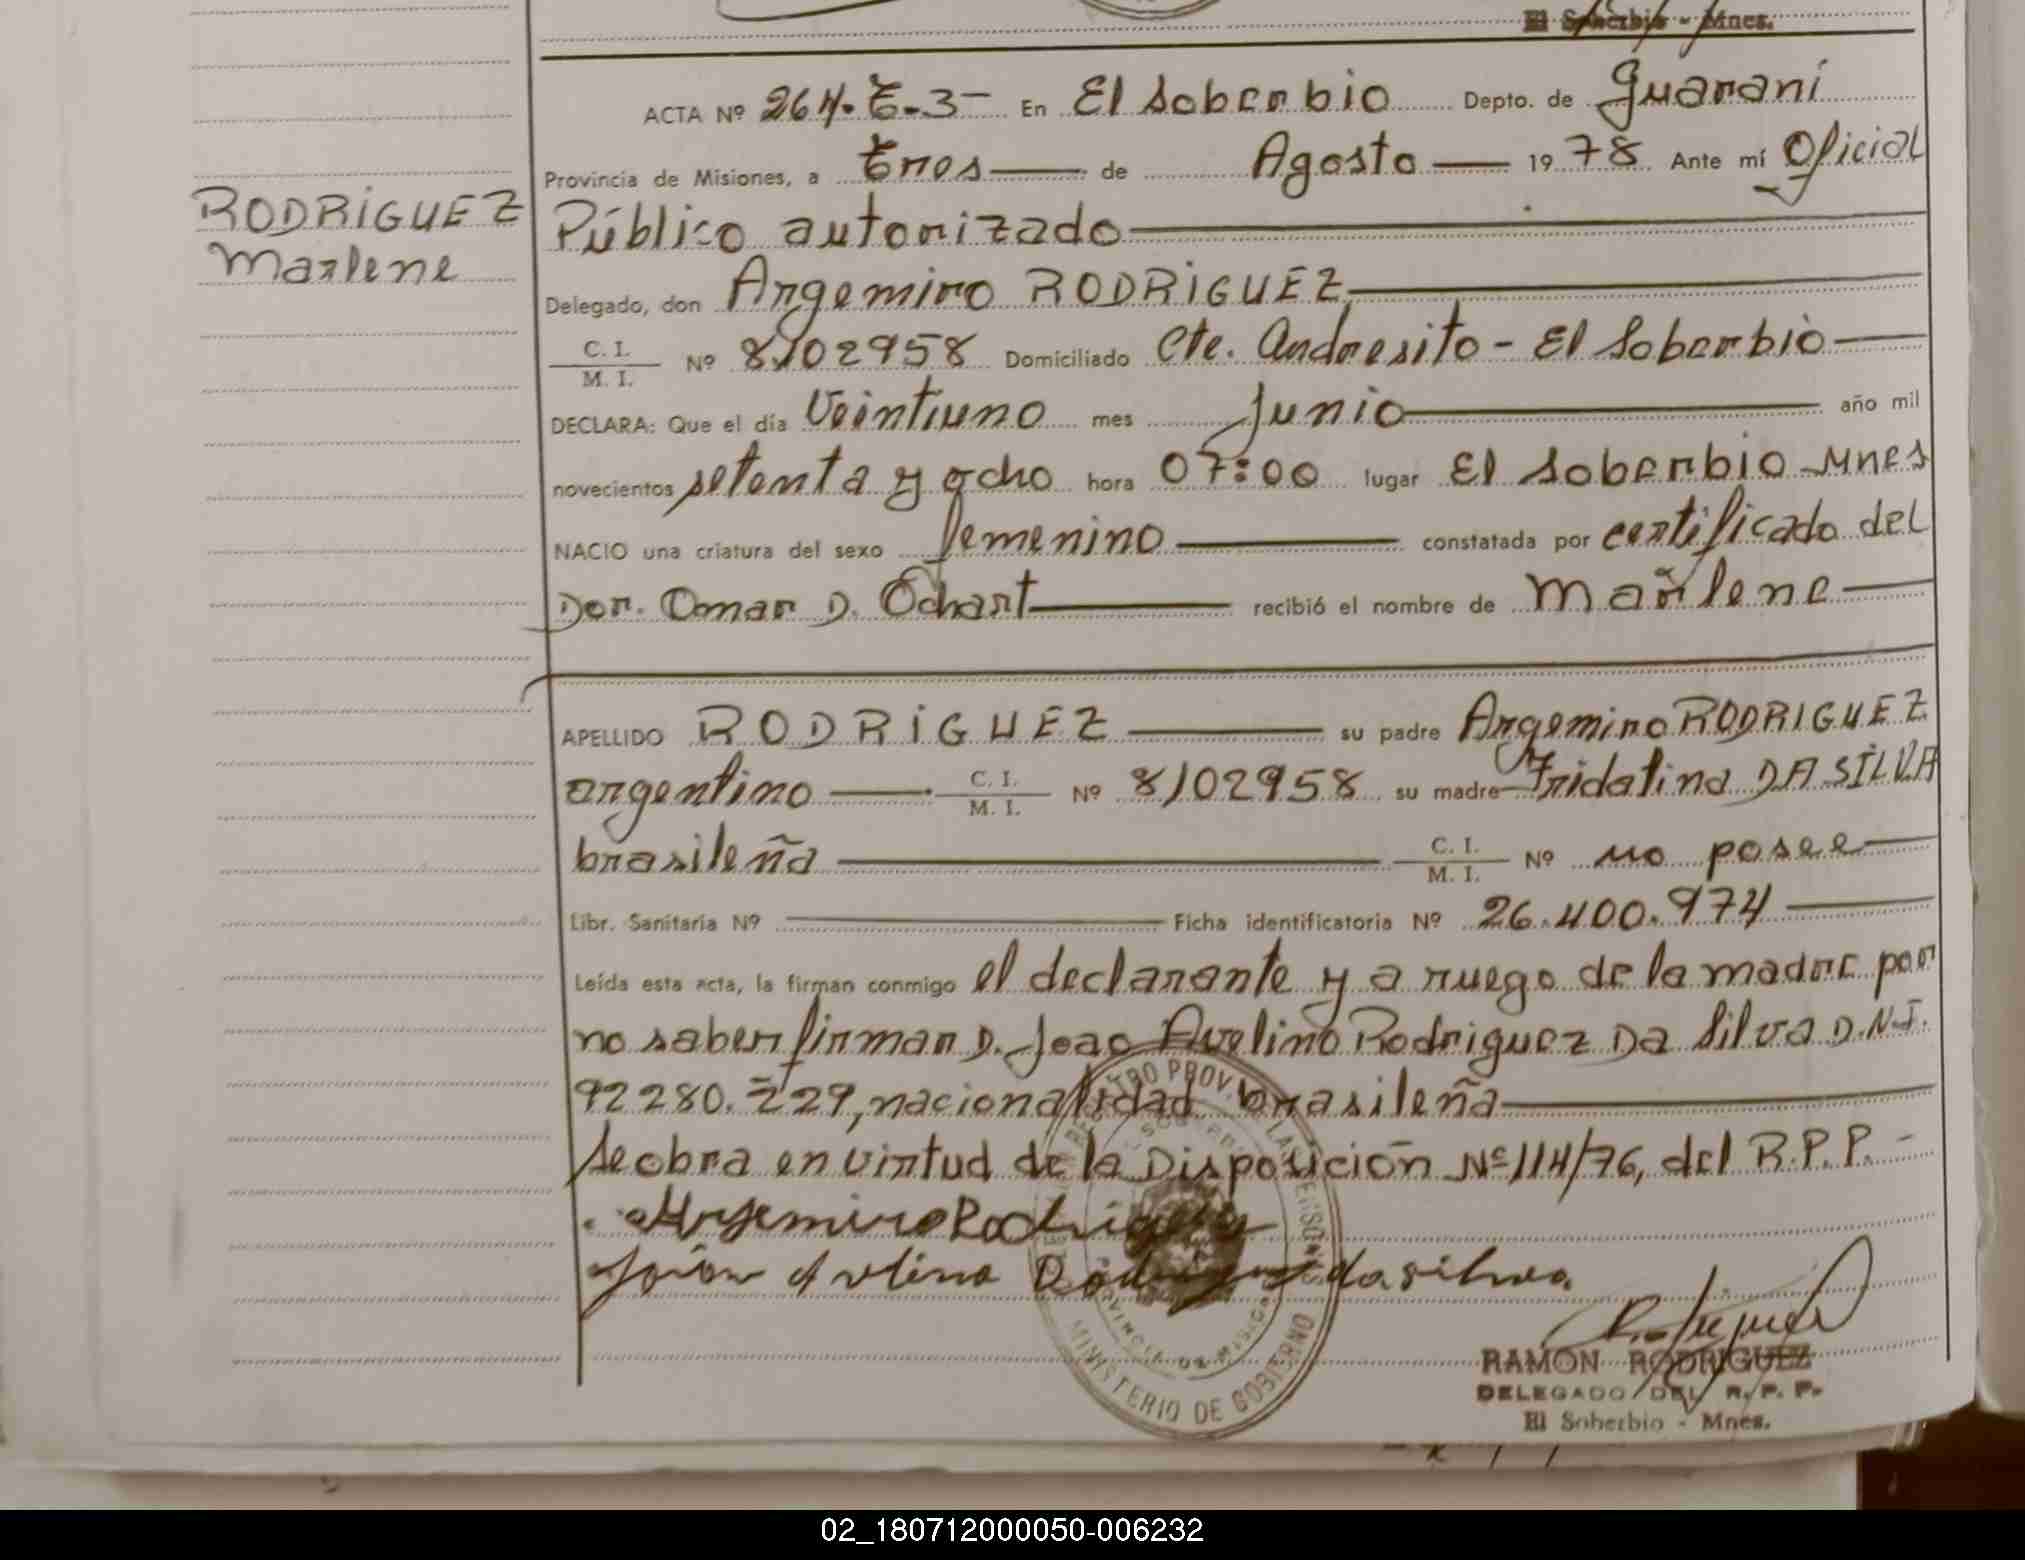 El Soberbio - Mnes.
ACTA Nº 264. T-3- En El Soberbio Depto. de Guaraní
Provincia de Misiones, a tres de Agosto 1978 Ante mí Oficial
RODRIGUEZ
Marlene
Público autorizado
Delegado, don Argemiro RODRIGUEZ
C. I. / M. I. Nº 8102958 Domiciliado Cte. Andresito - El Soberbio
DECLARA: Que el día Veintiuno mes Junio año mil
novecientos setenta y ocho hora 07:00 lugar El Soberbio Mnes
NACIO una criatura del sexo femenino constatada por certificado del
Dor. Omar D. Ochart recibió el nombre de Marlene
APELLIDO RODRIGUEZ su padre Argemiro RODRIGUEZ
argentino C. I. / M. I. Nº 8102958 su madre Fridalina DA SILVA
brasileña C. I. / M. I. Nº no posee
Libr. Sanitaria Nº Ficha identificatoria Nº 26.400.974
Leída esta acta, la firman conmigo el declarante y a ruego de la madre por
no saber firmar D. Joao Avelino Rodriguez Da Silva D.N.I.
92280.229, nacionalidad brasileña
Se obra en virtud de la Disposición Nº 114/76, del R.P.P.-
Argemiro Rodriguez
Avelino Rodriguez da silva
MINISTERIO DE GOBIERNO
RAMON RODRIGUEZ
DELEGADO DEL R. P. P.
El Soberbio - Mnes.
02_180712000050-006232